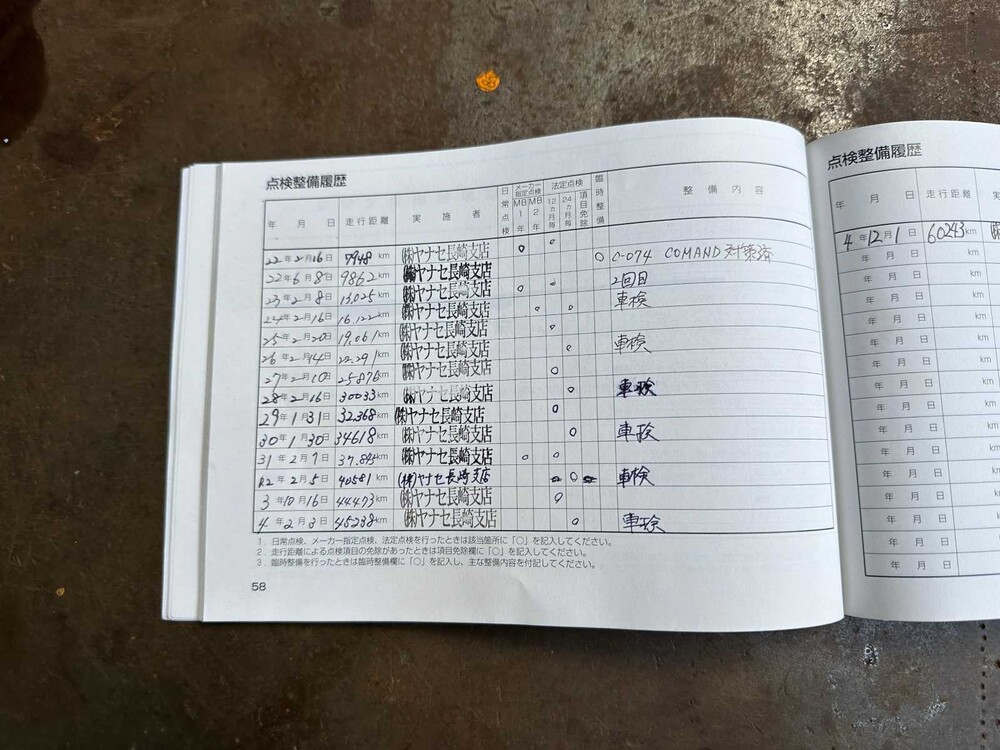 点検整備履歴
年 月 日 走行距離 実施者 日常点検 メーカー指定点検 MB1年 MB2年 法定点検 12ヵ月毎 24ヵ月毎 項目免除 臨時整備 整備内容
22年2月16日 7948km ㈱ヤナセ長崎支店 ○ ○ ○ C-074 COMAND対策済
22年6月8日 9862km ㈱ヤナセ長崎支店 2回目
23年2月8日 13,025km ㈱ヤナセ長崎支店 ○ ○ 車検
24年2月16日 16,122km ㈱ヤナセ長崎支店 ○ ○
25年2月20日 19,061km ㈱ヤナセ長崎支店 ○
26年2月14日 22,291km ㈱ヤナセ長崎支店 ○ 車検
27年2月10日 25876km ㈱ヤナセ長崎支店 ○
28年2月16日 30033km ㈱ヤナセ長崎支店 ○ 車検
29年1月31日 32,368km ㈱ヤナセ長崎支店 ○
30年1月30日 34618km ㈱ヤナセ長崎支店 ○ 車検
31年2月7日 37,845km ㈱ヤナセ長崎支店 ○ ○
R2年2月5日 40581km ㈱ヤナセ長崎支店 ○ 車検
3年10月16日 44473km ㈱ヤナセ長崎支店 ○
4年2月3日 45238km ㈱ヤナセ長崎支店 ○ 車検
1. 日常点検、メーカー指定点検、法定点検を行ったときは該当箇所に「○」を記入してください。
2. 走行距離による点検項目の免除があったときは項目免除欄に「○」を記入してください。
3. 臨時整備を行ったときは臨時整備欄に「○」を記入し、主な整備内容を付記してください。
58
点検整備履歴
年 月 日 走行距離 実
4年12月1日 60243km ㈱
年 月 日 km
年 月 日 km
年 月 日 km
年 月 日 km
年 月 日 km
年 月 日 km
年 月 日 km
年 月 日 km
年 月 日 km
年 月 日 km
年 月 日 km
年 月 日 km
年 月 日 km
年 月 日 km